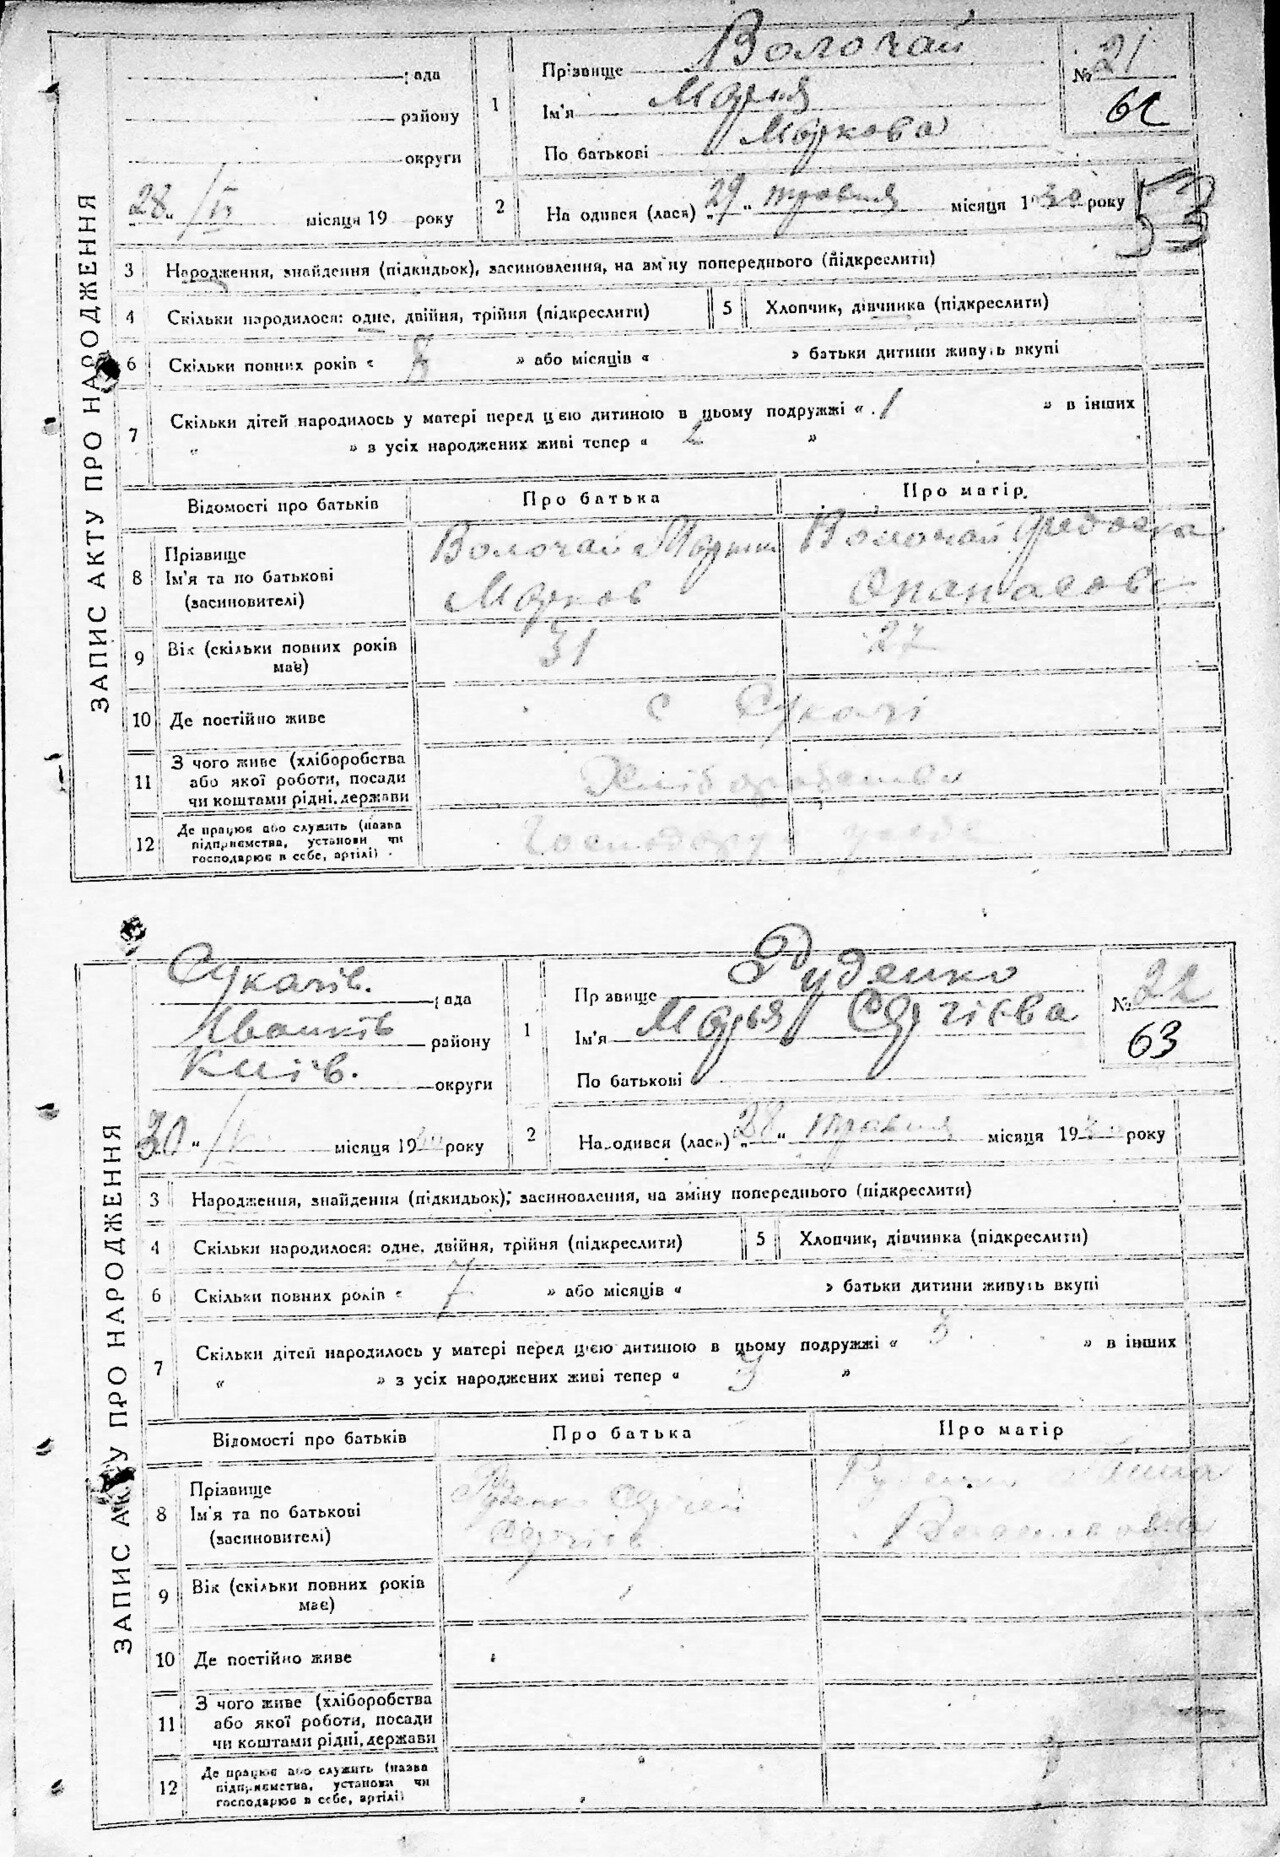 ЗАПИС АКТУ ПРО НАРОДЖЕННЯ
рада
району
округи
28 " / місяця 19 року
1
Прізвище Волочай
Ім'я Мария
По батькові Маркова
№ 21
62
2
Народився (лася) „29 " травня місяця 1930 року
53
3 Народження, знайдення (підкидьок), засиновлення, на зміну попереднього (підкреслити)
4 Скільки народилося: одне, двійня, трійня (підкреслити)
5 Хлопчик, дівчинка (підкреслити)
6 Скільки повних років « 8 » або місяців « » батьки дитини живуть вкупі
7 Скільки дітей народилось у матері перед цією дитиною в цьому подружжі « 1 » в інших
„ » з усіх народжених живі тепер « 2 »
Відомості про батьків
Про батька
Про матір
8 Прізвище
Ім'я та по батькові
(засиновителі)
Волочай
Марков
Волочай Федоска
9 Вік (скільки повних років
має)
31
27
10 Де постійно живе
с Сукачі
11 З чого живе (хліборобства
або якої роботи, посади
чи коштами рідні, держави
Хліборобство
12 Де працює або служить (назва
підприємства, установи чи
господарює в себе, артілі)
Господарує у себе
ЗАПИС АКТУ ПРО НАРОДЖЕННЯ
Сукачів. рада
Іванків району
Київ. округи
30 " / місяця 19 року
1
Прізвище Руденко
Ім'я Марья Сергієва
По батькові
№ 22
63
2
Народився (лася) „28 " травня місяця 1930 року
3 Народження, знайдення (підкидьок), засиновлення, на зміну попереднього (підкреслити)
4 Скільки народилося: одне, двійня, трійня (підкреслити)
5 Хлопчик, дівчинка (підкреслити)
6 Скільки повних років « 7 » або місяців « » батьки дитини живуть вкупі
7 Скільки дітей народилось у матері перед цією дитиною в цьому подружжі « 3 » в інших
„ » з усіх народжених живі тепер « 3 »
Відомості про батьків
Про батька
Про матір
8 Прізвище
Ім'я та по батькові
(засиновителі)
Руденко Сергей
Сергіев
Руденко Ганна
9 Вік (скільки повних років
має)
10 Де постійно живе
11 З чого живе (хліборобства
або якої роботи, посади
чи коштами рідні, держави
12 Де працює або служить (назва
підприємства, установи чи
господарює в себе, артілі)